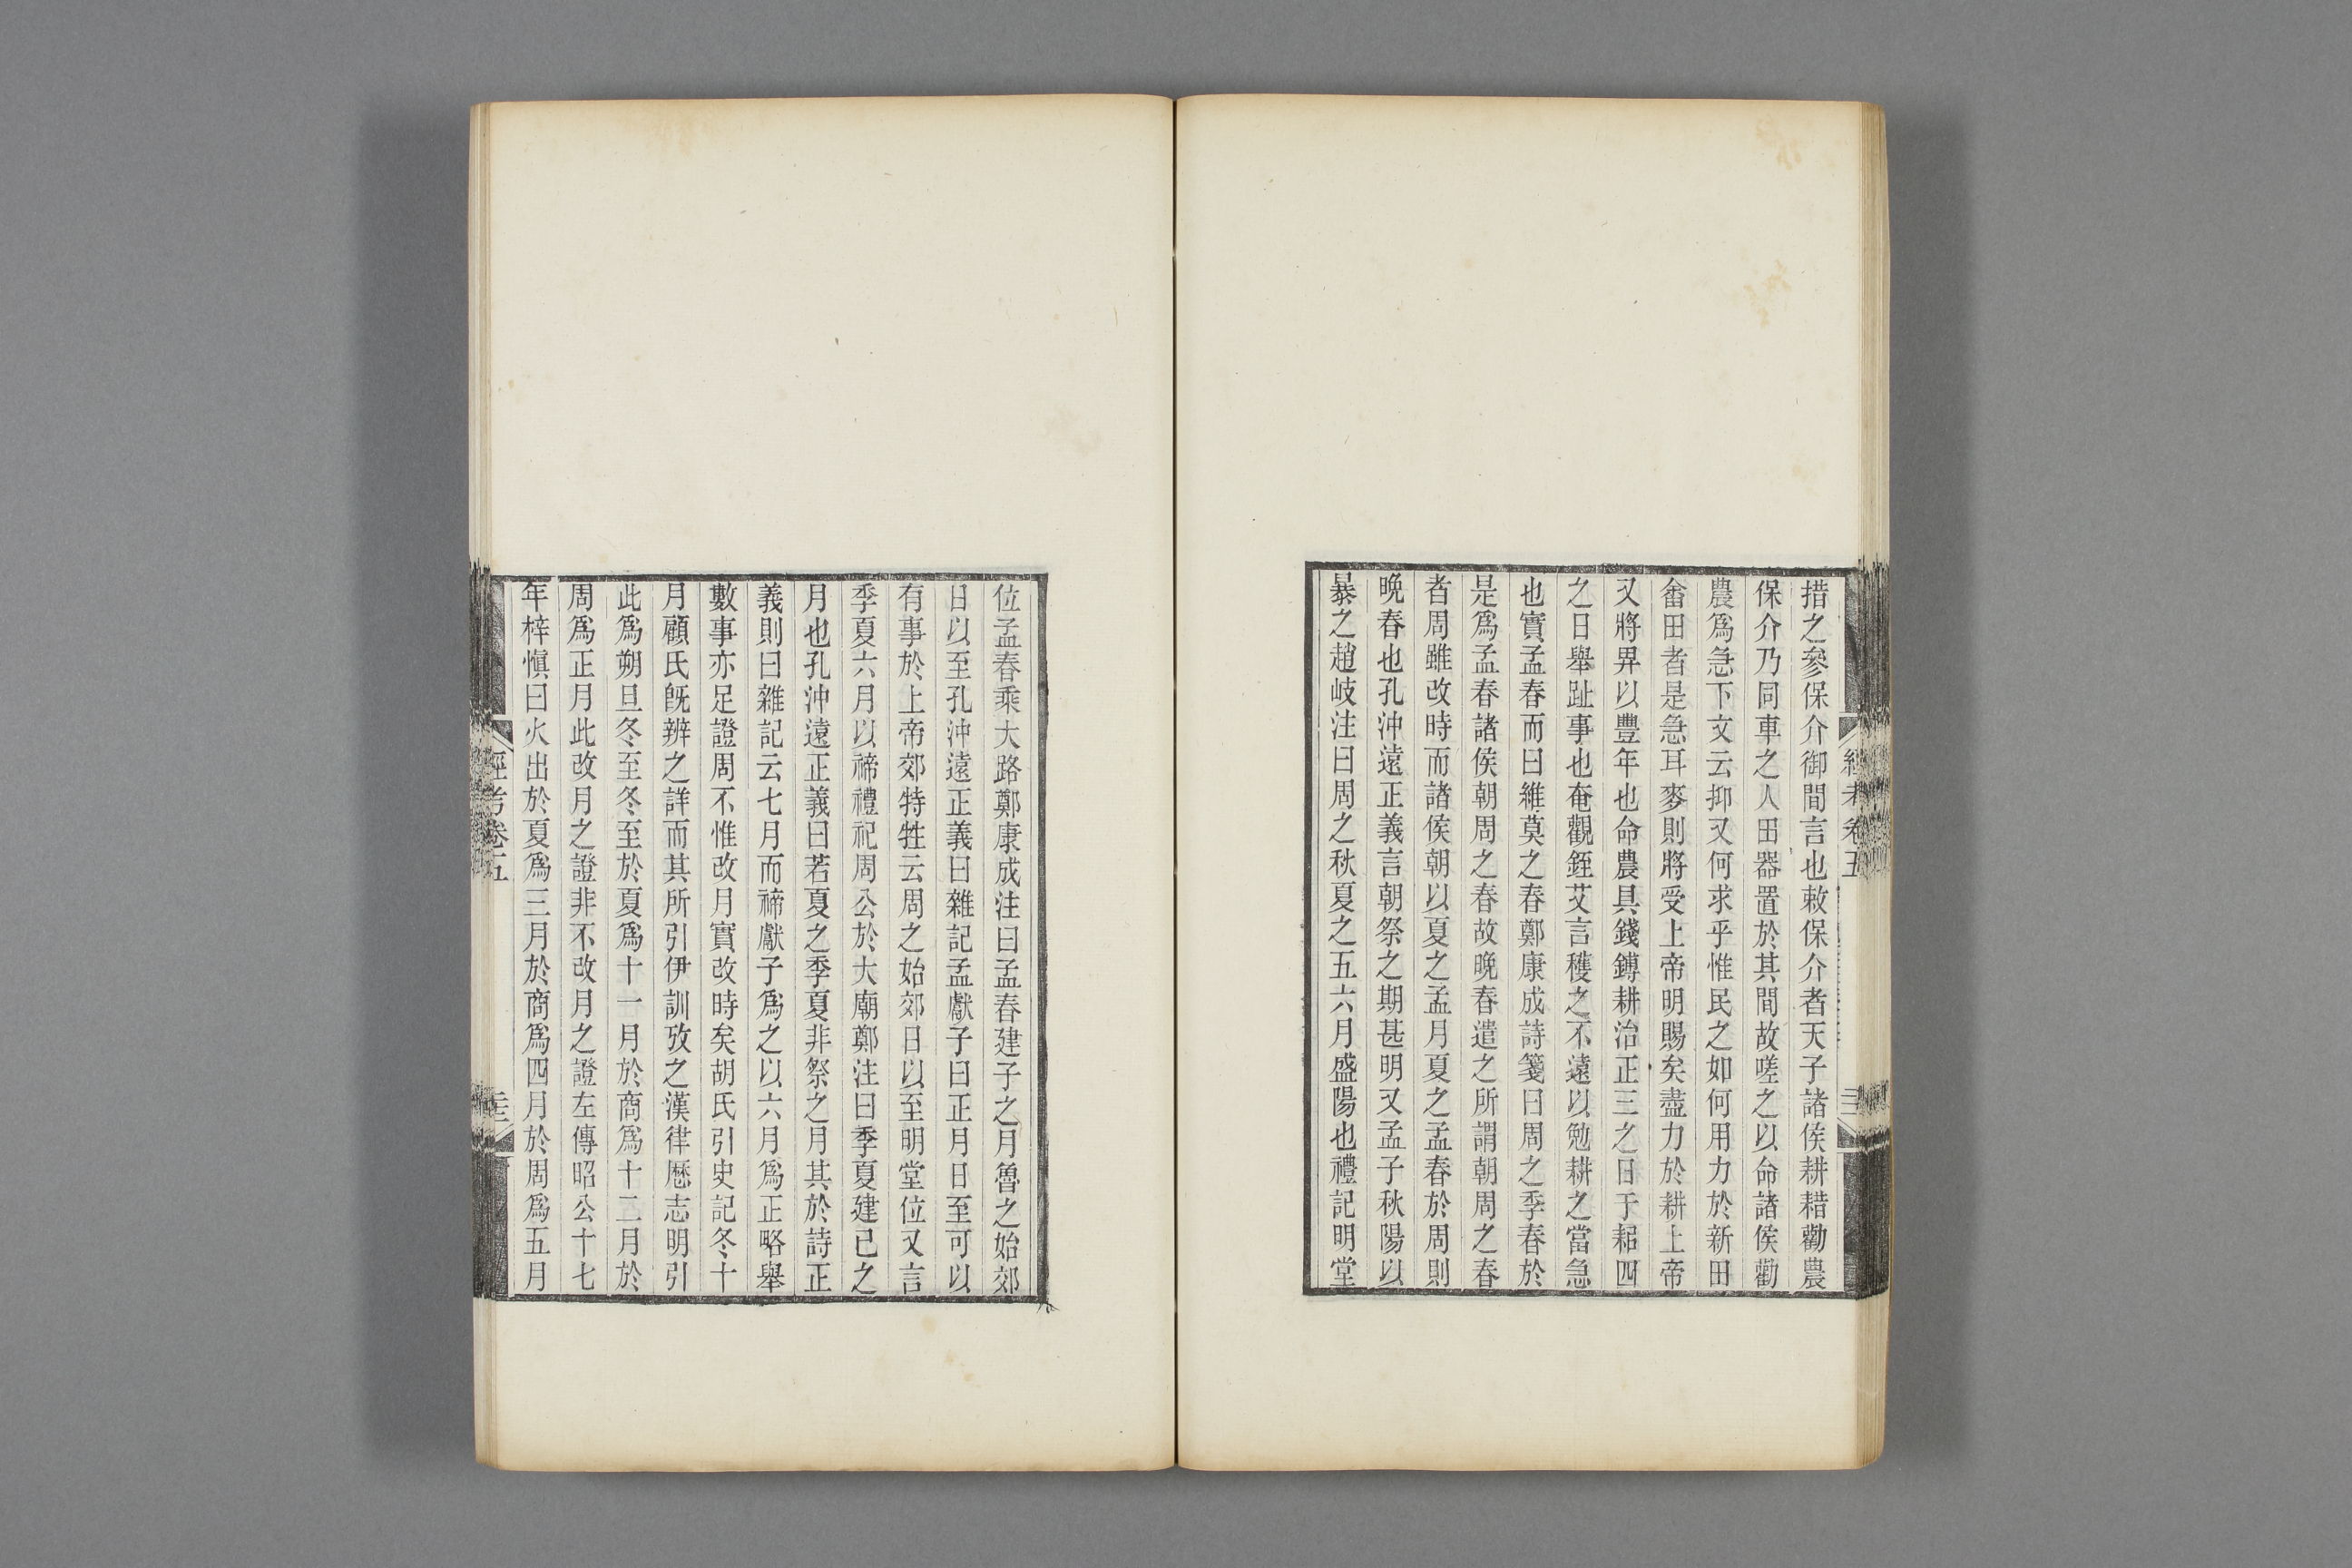 措之參保介御間言也敕保介者天子諸侯耕耤勸農
保介乃同車之人田器置於其間故嗟之以命諸侯勸
農爲急下文云抑又何求乎惟民之如何用力於新田
畬田者是急耳麥則將受上帝明賜矣盡力於耕上帝
又將畀以豐年也命農具錢鎛耕治正三之日于耜四
之日舉趾事也奄觀銍艾言穫之不遠以勉耕之當急
也實孟春而曰維莫之春鄭康成詩箋曰周之季春於
是爲孟春諸侯朝周之春故晚春遣之所謂朝周之春
者周雖改時而諸侯朝以夏之孟月夏之孟春於周則
晚春也孔沖遠正義言朝祭之期甚明又孟子秋陽以
暴之趙岐注曰周之秋夏之五六月盛陽也禮記明堂
位孟春乘大路鄭康成注曰孟春建子之月魯之始郊
日以至孔沖遠正義曰雜記孟獻子曰正月日至可以
有事於上帝郊特牲云周之始郊日以至明堂位又言
季夏六月以禘禮祀周公於大廟鄭注曰季夏建巳之
月也孔沖遠正義曰若夏之季夏非祭之月其於詩正
義則曰雜記云七月而禘獻子爲之以六月爲正略舉
數事亦足證周不惟改月實改時矣胡氏引史記冬十
月顧氏旣辨之詳而其所引伊訓攷之漢律厯志明引
此爲朔旦冬至冬至於夏爲十一月於商爲十二月於
周爲正月此改月之證非不改月之證左傳昭公十七
年梓愼曰火出於夏爲三月於商爲四月於周爲五月
經考卷五